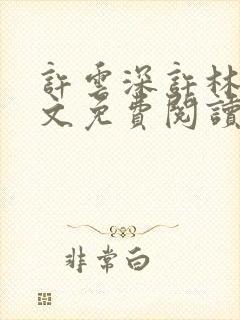 許雲深許林
文免費閱讀
非常白